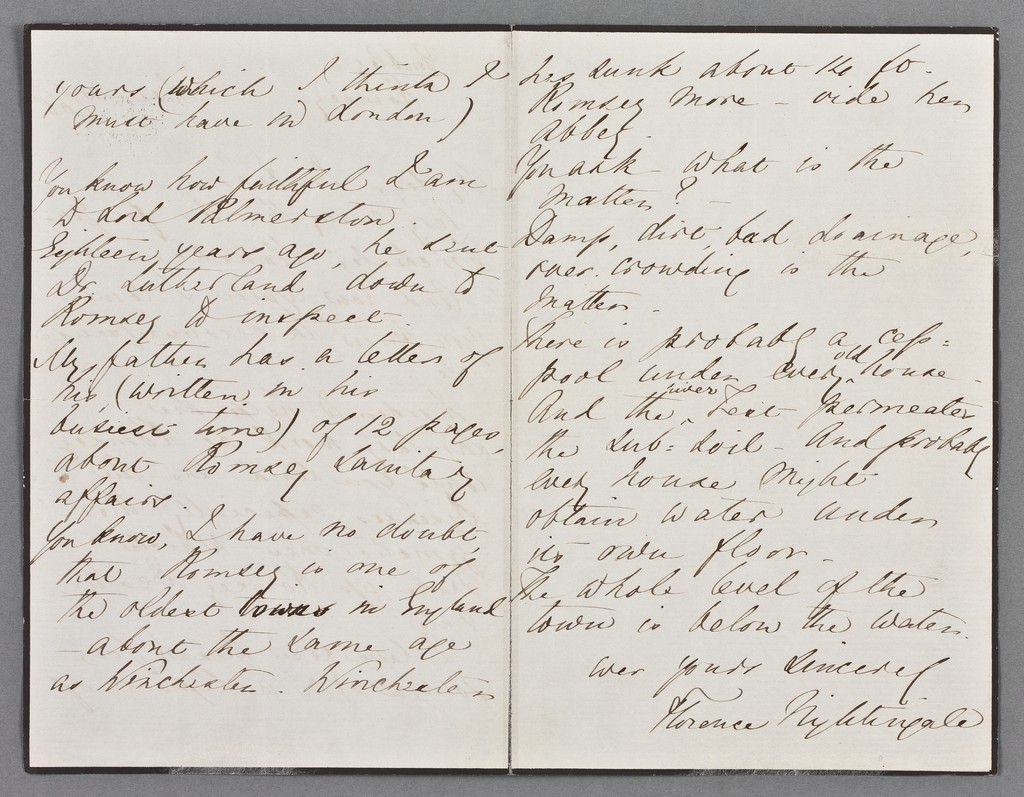 yours (which I think I
must have in London)
You know how faithful I am
to Lord Palmerston.
Eighteen years ago, he sent
Dr. Sutherland down to
Romsey to inspect.
My father has a letter of
his, (written in his
busiest time) of 12 pages,
about Romsey sanitary
affairs.
You know, I have no doubt,
that Romsey is one of
the oldest towns in England
- about the same age
as Winchester. Winchester
has sunk about 14 ft.
Romsey more - vide her
Abbey.
You ask - what is the
matter? -
Damp, dirt, bad drainage,
over-crowding is the
matter.
There is probably a cess=
pool under every old house.
And the river Test permeates
the sub=soil - And probably
every house might
obtain water under
its own floor -
The whole level of the
town is below the water.
ever yours sincerely
Florence Nightingale